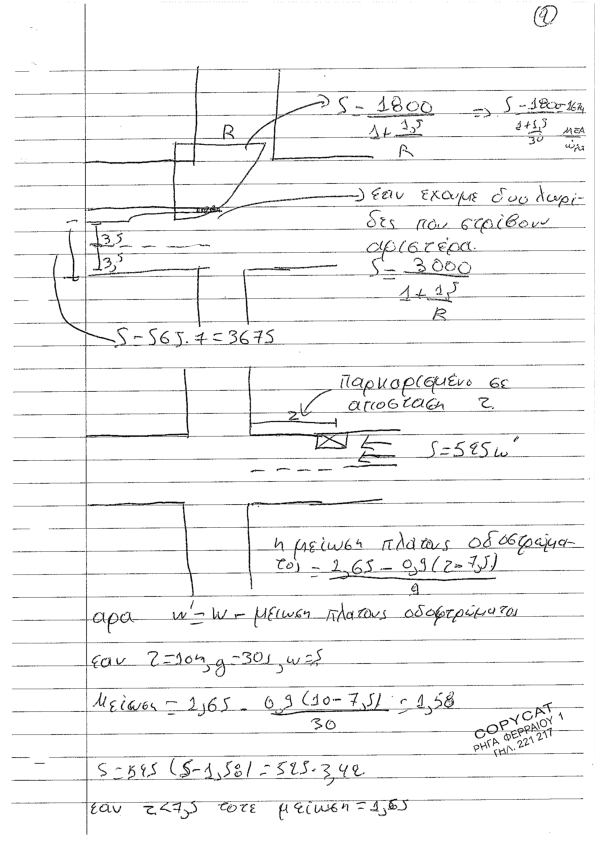 9
R
S = 1800 / (1 + 1,5/R) => S = 1800 / (1 + 1,5/30)
εαν εχουμε δυο λωρι-
δες που στριβουν
αριστερα.
S = 3000 / (1 + 1,5/R)
3,5
3,5
S = 565.7 = 3675
παρκαρισμενο σε
αποσταση z.
z
S = 525 w'
η μείωση πλατους οδοστρωμα-
τος = 1,65 - 0,9 (z - 7,5) / g
αρα w' = w - μειωση πλατους οδοστρωματος
εαν z = 10m, g = 30s, w = 5
Μειωση = 1,65 - 0,9 (10 - 7,5) / 30 = 1,58
S = 525 (5 - 1,58) = 525 . 3,42
εαν z < 7,5 τοτε μειωση = 1,65
COPYCAT
ΡΗΓΑ ΦΕΡΡΑΙΟΥ 1
ΤΗΛ. 221 217